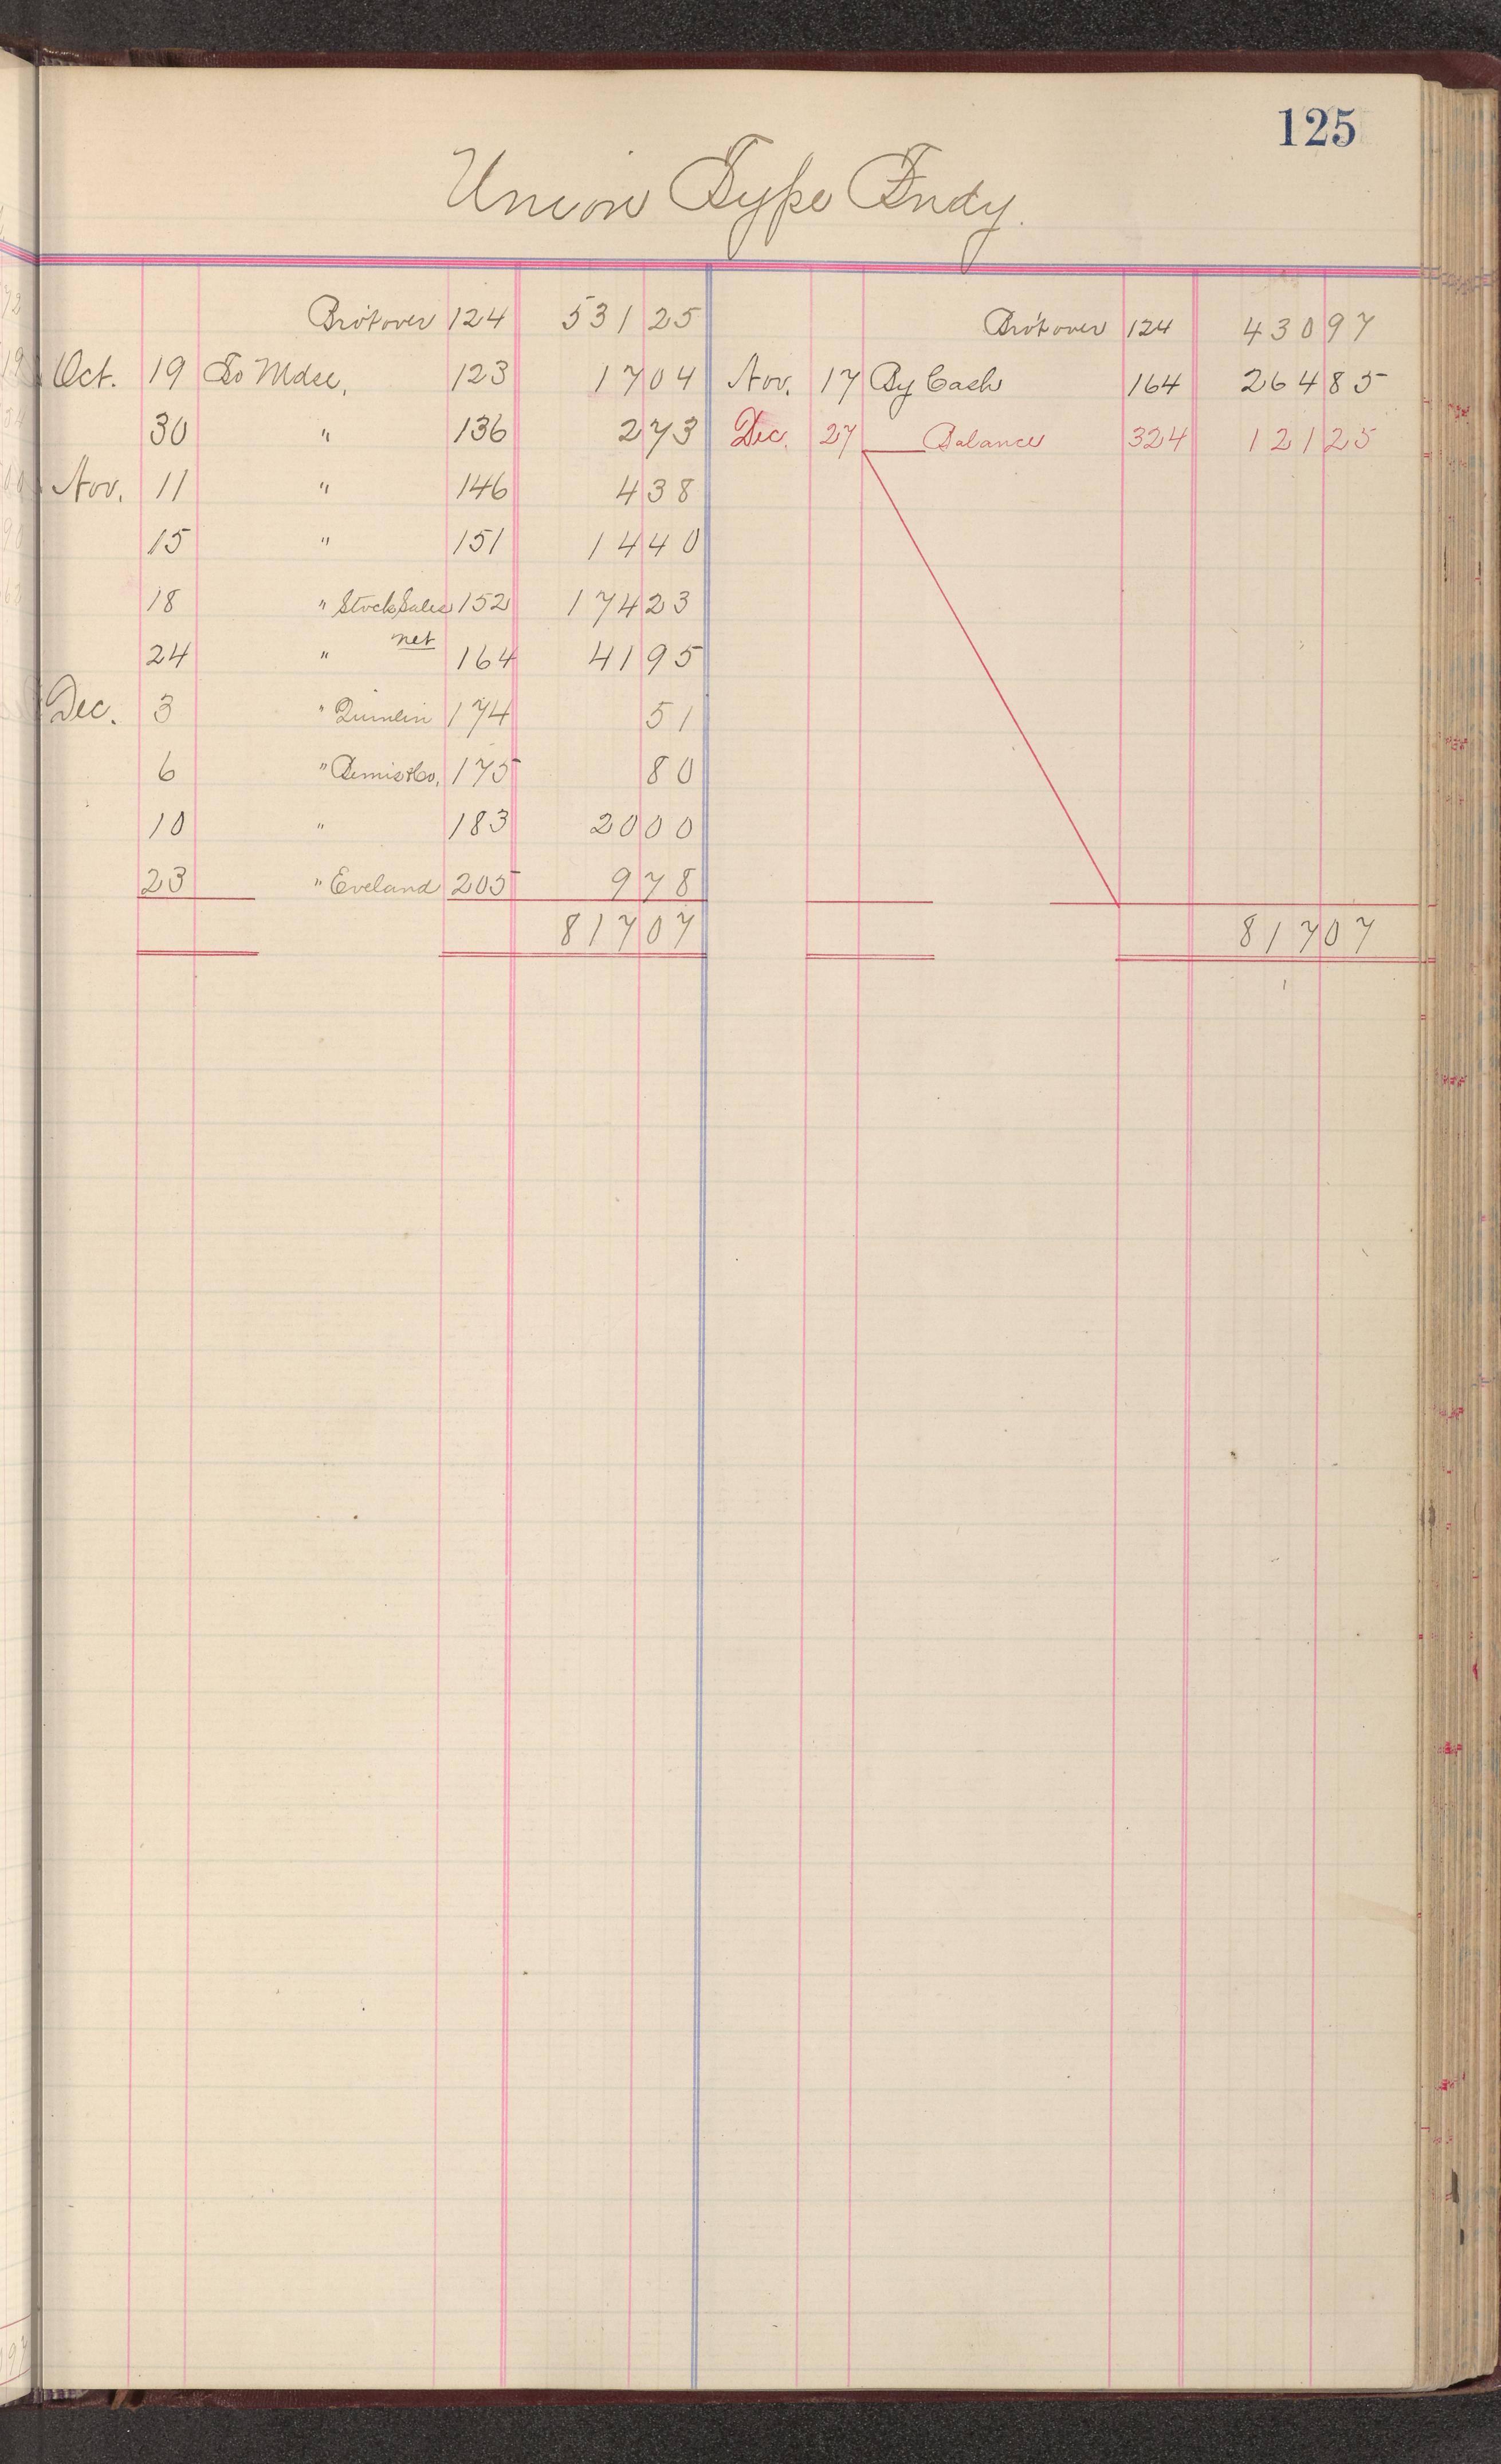 125
Union Type Fndy.
Bro't over 124 531 25
Oct. 19 To Mdse, 123 17 04
30 " 136 2 73
Nov. 11 " 146 4 38
15 " 151 14 40
18 " Stock Sales 152 174 23
24 " net 164 41 95
Dec. 3 " Quinlin 174 51
6 " Bemis & Co, 175 80
10 " 183 20 00
23 " Eveland 205 9 78
817 07
Bro't over 124 430 97
Nov. 17 By Cash 164 264 85
Dec. 27 Balance 324 121 25
817 07